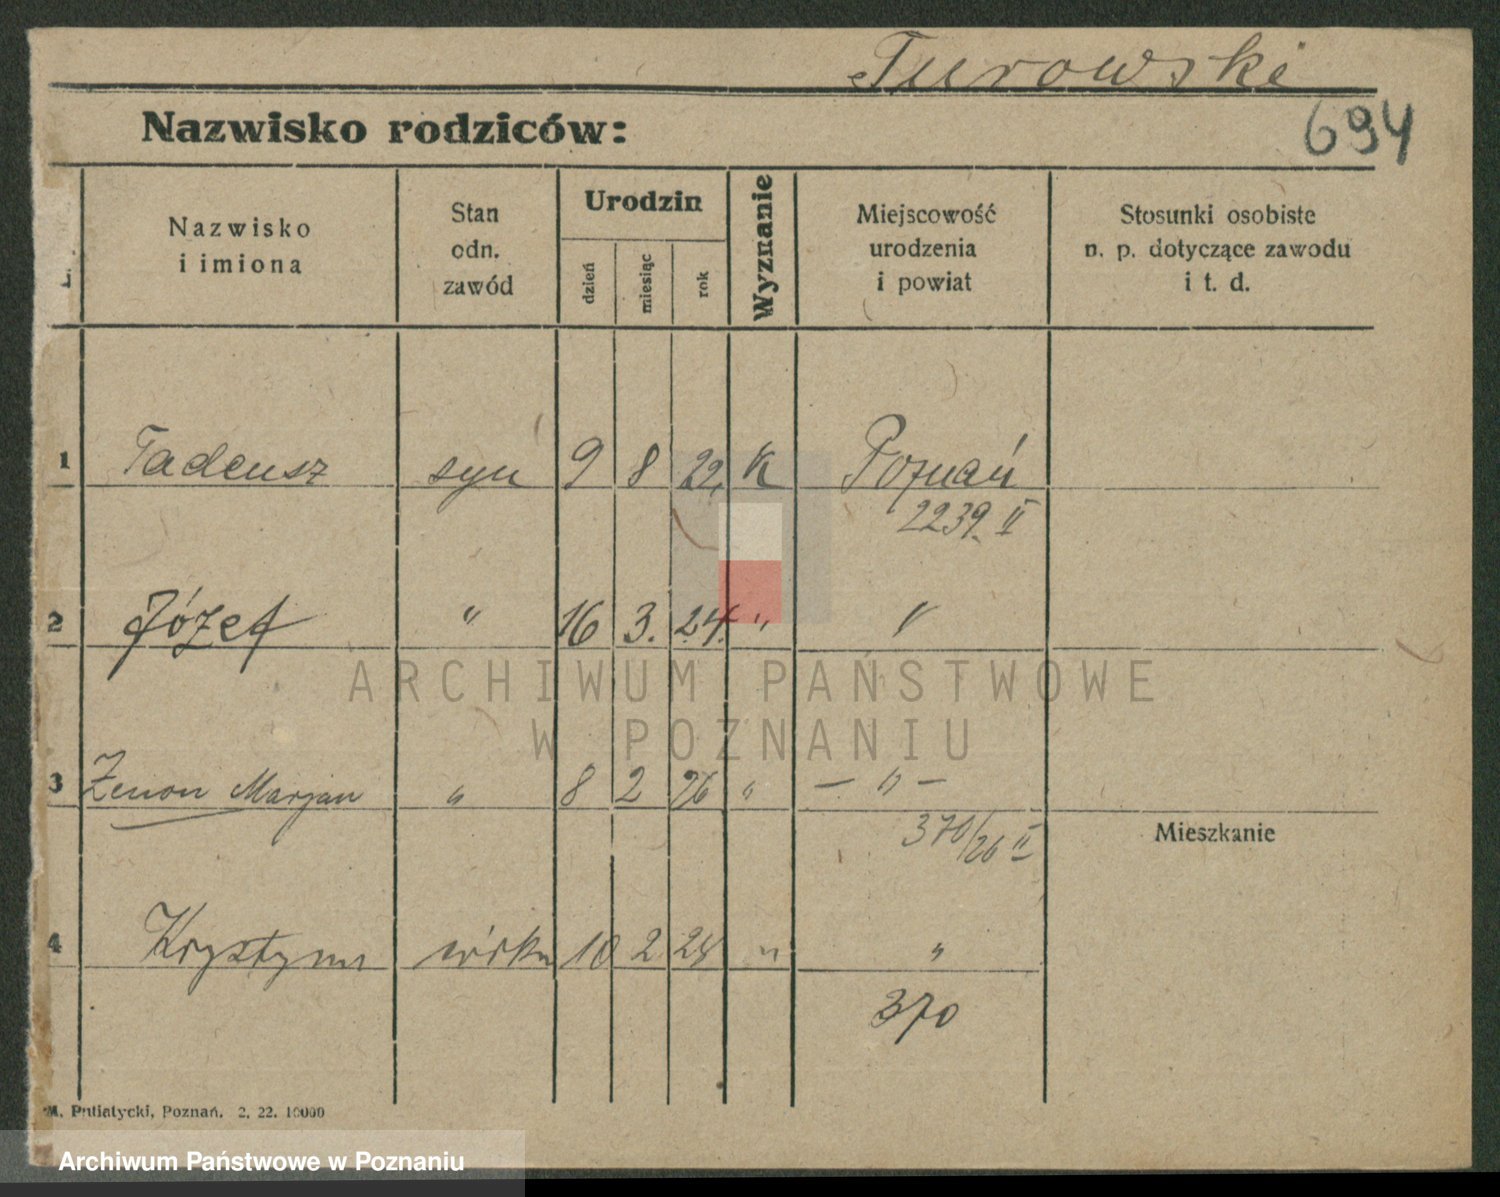 Turowski
Nazwisko rodziców:
694
Nazwisko
i imiona
Stan
odn.
zawód
Urodzin
dzień
miesiąc
rok
Wyznanie
Miejscowość
urodzenia
i powiat
Stosunki osobiste
n. p. dotyczące zawodu
i t. d.
1 Tadeusz syn 9 8 22, K Poznań
2239. II
2 Józef " 16 3. 24. " "
ARCHIWUM PAŃSTWOWE
W POZNANIU
3 Zenon Marjan " 8 2 26 " — " —
370/26 II
Mieszkanie
4 Krystyna córka 10 2 28 " "
370
M. Putiatycki, Poznań. 2. 22. 10000
Archiwum Państwowe w Poznaniu